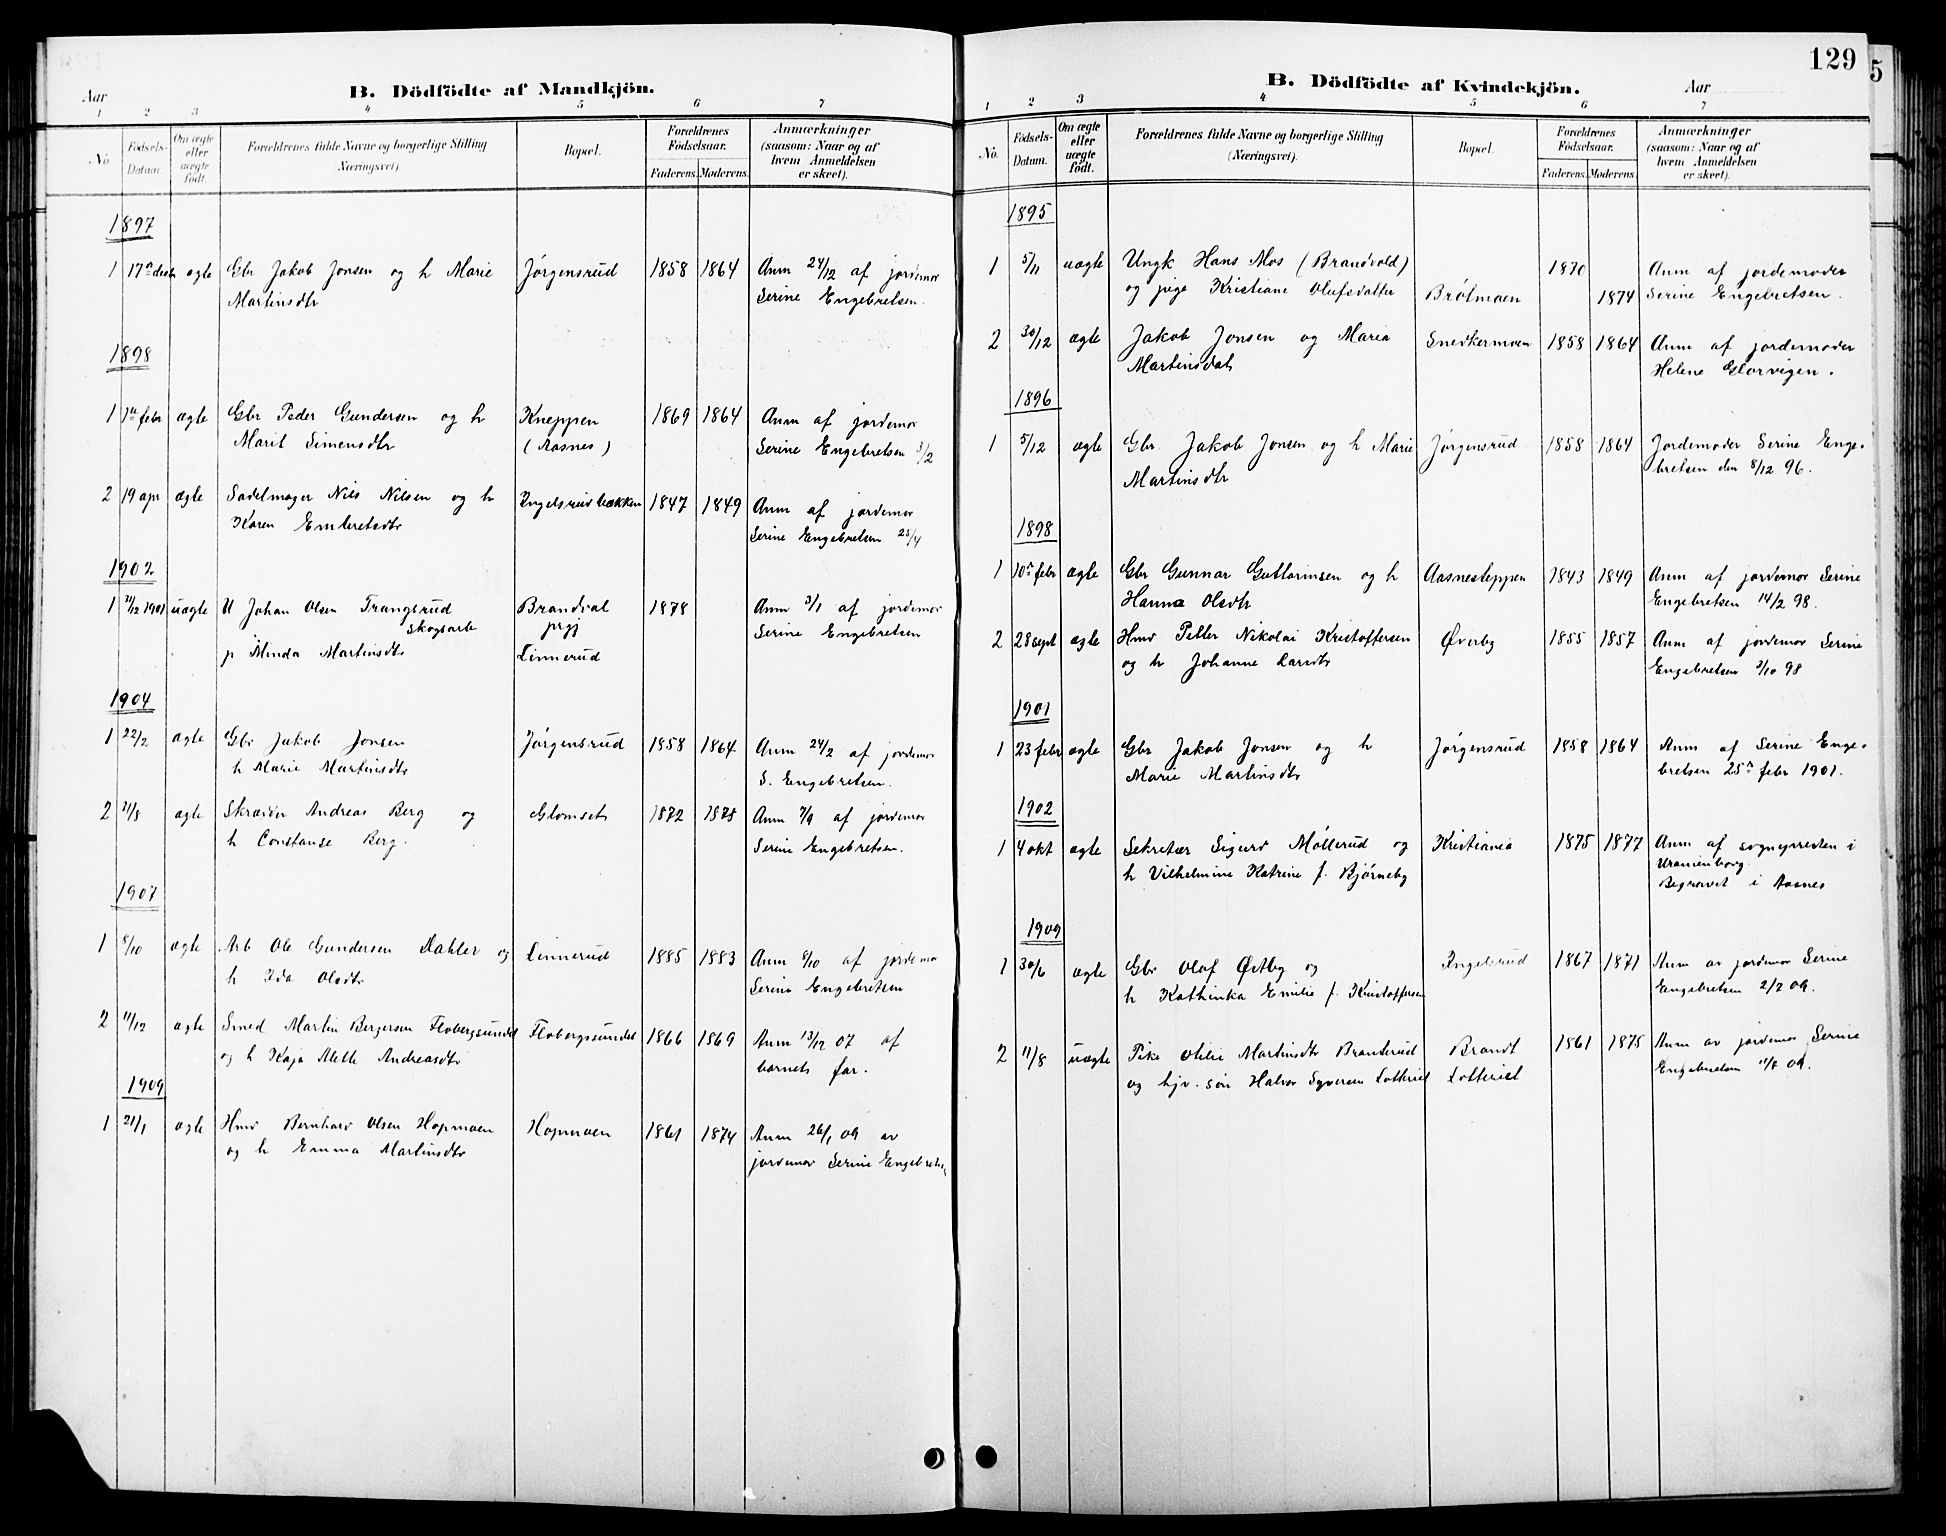 B. Dödfödte af Mandkjön.
Aar
1 2 3 4 5 6 7
No.
Födsels-Datum.
Om ægte eller uægte födt.
Forældrenes fulde Navne og borgerlige Stilling
(Næringsvei).
Bopæl.
Forældrenes Födselsaar.
Faderens. Moderens.
Anmærkninger
(saasom: Naar og af
hvem Anmeldelsen
er skeet).
1897
1 17de decbr ægte Gbr Jakob Jonsen og h Marie Jørgensrud 1858 1864 Anm 24/12 af jordemor
Martinsdtr Serine Engebretsen.
1898
1 1ste febr ægte Gbr Peder Gundersen og h Kneppen 1869 1864 Anm af jordemor
Marit Simensdtr (Aasnes) Serine Engebretsen 3/2
2 19 apr ægte Sadelmager Nils Nilsen og h Engelsrudbakken 1847 1849 Anm af jordemor
Karen Embretsdtr Serine Engebretsen 25/4
1902
1 21/12 1901 uægte U Johan Olsen Trangsrud Brandval 1878 Anm 3/1 af jordemor
skogsarb prgj Serine Engebretsen
p Minda Martinsdtr Linnerud
1904
1 22/2 ægte Gbr Jakob Jonsen Jørgensrud 1858 1864 Anm 24/2 af jordemor
h Marie Martinsdtr S. Engebretsen.
2 21/8 ægte Skrædder Andreas Berg og Glomset 1872 1875 Anm 7/9 af jordemor
h Constanse Berg. Serine Engebretsen.
1907
1 5/10 ægte Arb Ole Gundersen Dahler og Linnerud 1885 1883 Anm 8/10 af jordemor
h Ida Olsdtr Serine Engebretsen
2 11/12 ægte Smed Martin Bergersen Flobergsundet Flobergsundet 1866 1869 Anm 13/12 07 af
og h Kaja Alette Andreasdtr barnets far.
1909
1 21/1 ægte Hmd Bernhard Olsen Hopmoen Hopmoen 1861 1874 Anm 26/1 09 av
og h Emma Martinsdtr jordemor Serine Engebretsen
129
5
B. Dödfödte af Kvindekjön.
Aar
1 2 3 4 5 6 7
No.
Födsels-Datum.
Om ægte eller uægte födt.
Forældrenes fulde Navne og borgerlige Stilling
(Næringsvei).
Bopæl.
Forældrenes Födselsaar.
Faderens. Moderens.
Anmærkninger
(saasom: Naar og af
hvem Anmeldelsen
er skeet).
1895
1 5/11 uægte Ungk Hans Mos (Brandvold) 1870 Anm af jordemoder
og pige Kristiane Olufsdatter Bråtmoen 1874 Serine Engebretsen.
2 30/12 ægte Jakob Jonsen og Maria Snedkermoen 1858 1864 Anm af jordemoder
Martinsdat Helene Glorvigen.
1896
1 5/12 ægte Gbr Jakob Jonsen og h Marie Jørgensrud 1858 1864 Jordemoder Serine Enge-
Martinsdtr bretsen den 8/12 96.
1898
1 10de febr ægte Gbr Gunnar Guttormsen og h Aasnesteppen 1843 1849 Anm af jordemor Serine
Hanna Olsdtr Engebretsen 14/2 98.
2 28 sept ægte Hmd Petter Nikolai Kristoffersen Øverby 1855 1857 Anm af jordemor Serine
og h Johanne Larsdtr Engebretsen 3/10 98
1901
1 23 febr ægte Gbr Jakob Jonsen og h Jørgensrud 1858 1864 Anm af Serine Enge-
Marie Martinsdtr bretsen 25de febr 1901.
1902
1 4 okt ægte Sekretær Sigurd Møllerud og Kristiania 1875 1877 Anm af sognepresten i
h Vilhelmine Katrine f. Bjørneby Uranienborg.
Begravet i Aasnes
1909
1 30/6 ægte Gbr Olaf Østby og Engelsrud 1867 1871 Anm av jordemor Serine
h Kathinka Emilie f. Kristoffersen Engebretsen 2/7 09.
2 11/8 uægte Pike Otilie Martinsdtr Branterud Brandt 1861 1875 Anm av jordemor Serine
og hjv. søn Halvor Syversen Lotteriet Lotteriet Engebretsen 11/8 09.